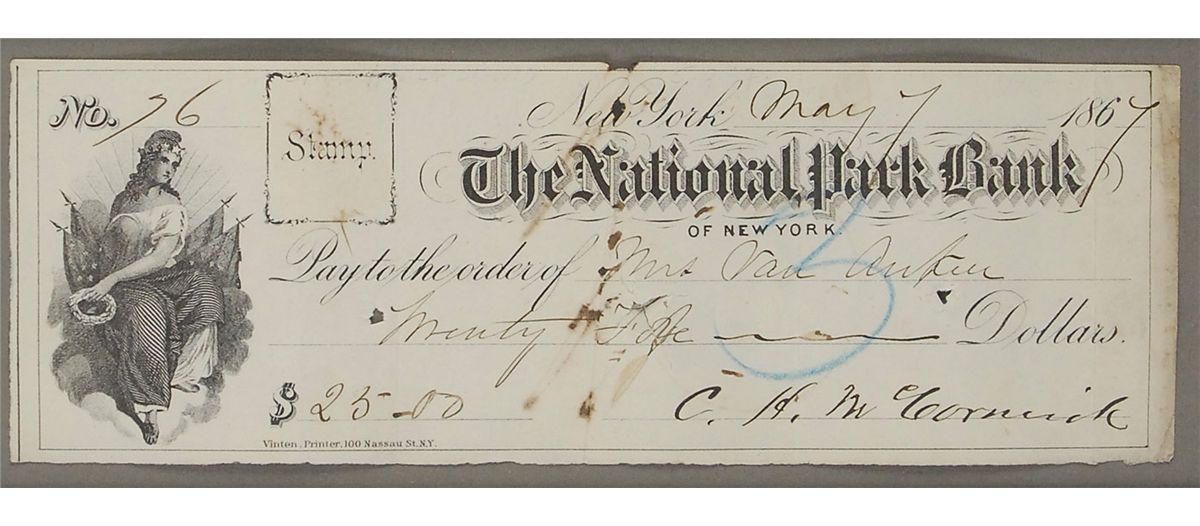 No. 76
Stamp.
New York May 7 1867
The National Park Bank
OF NEW YORK.
Pay to the order of Mrs Van Auken
Twenty Five Dollars.
$ 25-00
C. H. McCormick
Vinten, Printer, 100 Nassau St. N.Y.